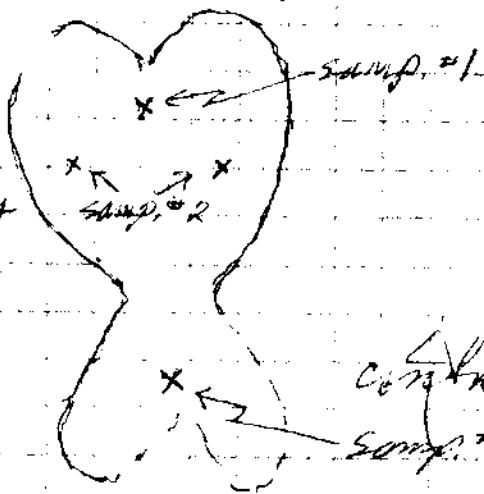 samp. #1
samp. #2
samp. #